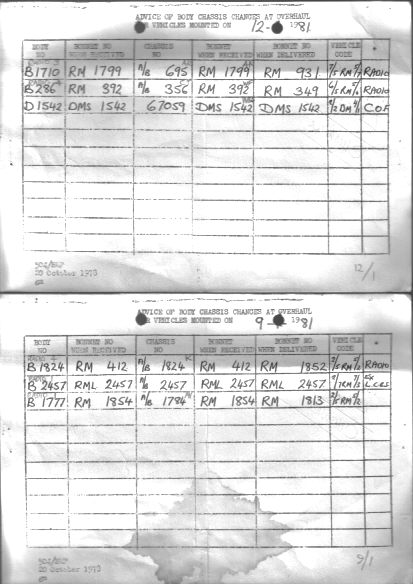 ADVICE OF BODY CHASSIS CHANGES AT OVERHAUL
VEHICLES MOUNTED ON 12- 1981
BODY NO BONNET NO WHEN RECEIVED CHASSIS NO BONNET NO WHEN RECEIVED BONNET NO WHEN DELIVERED VEHICLE CODE
B1710 RM 1799 A/B 695 RM 1799 RM 931 RADIO
B286 RM 392 A/B 356 RM 392 RM 349 RADIO
D1542 DMS 1542 67059 DMS 1542 DMS 1542 COF
20 October 1978
12/1
ADVICE OF BODY CHASSIS CHANGES AT OVERHAUL
VEHICLES MOUNTED ON 9- 1981
BODY NO BONNET NO WHEN RECEIVED CHASSIS NO BONNET NO WHEN RECEIVED BONNET NO WHEN DELIVERED VEHICLE CODE
B1824 RM 412 A/B 1824 RM 412 RM 1852 RADIO
B2457 RML 2457 A/B 2457 RML 2457 RML 2457 EX LCBS
B1777 RM 1854 A/B 1784 RM 1854 RM 1813
20 October 1978
9/1